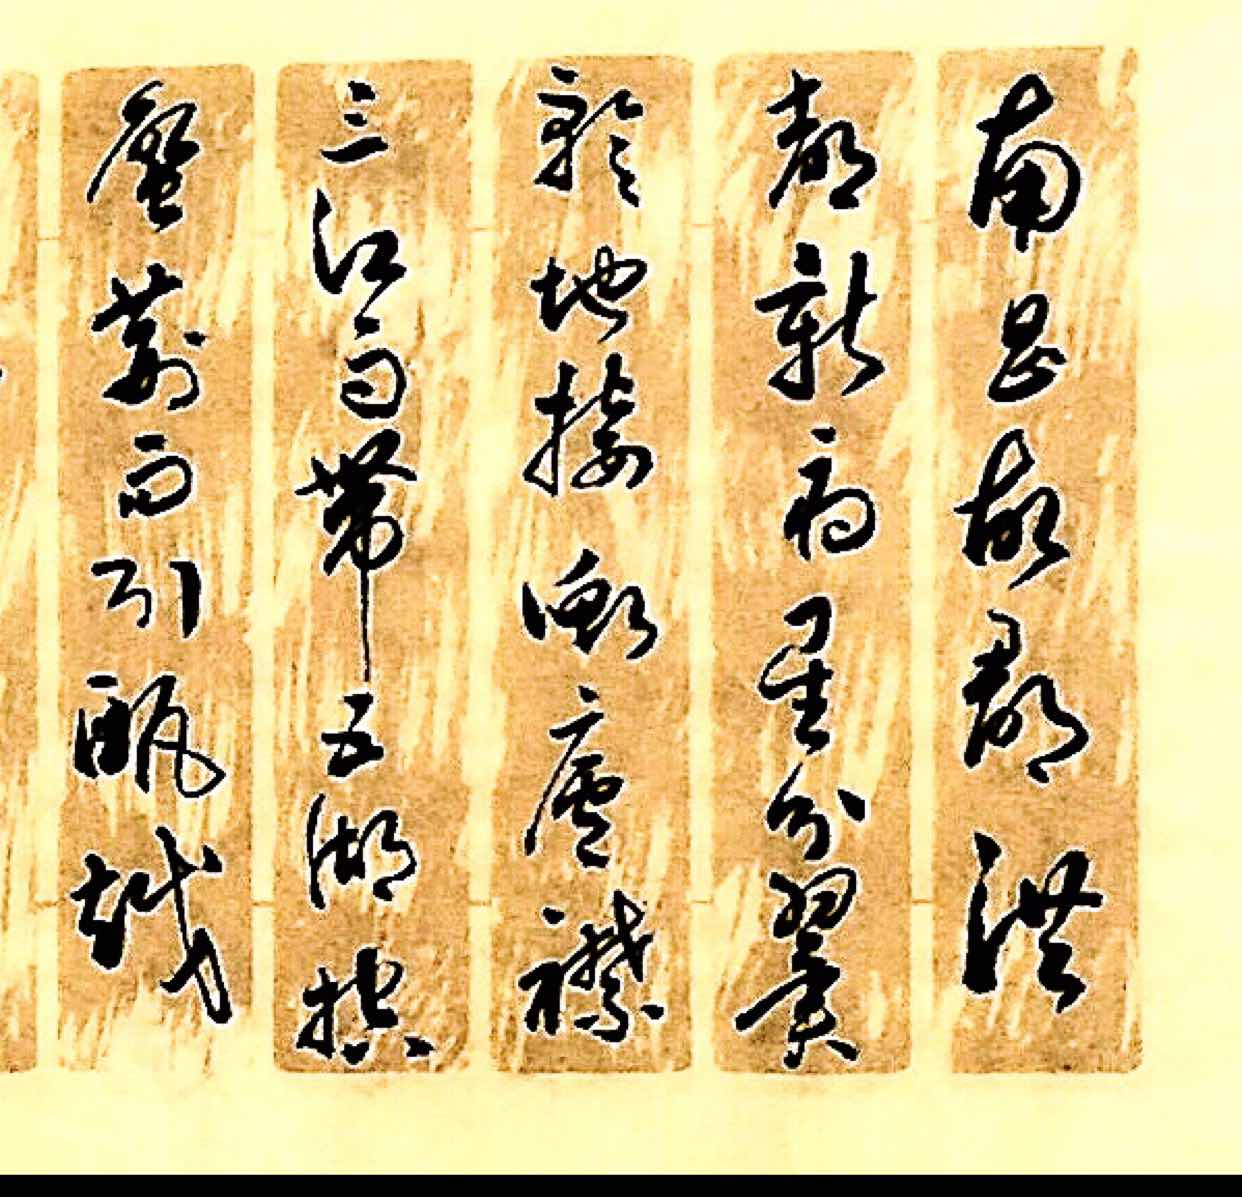 南昌故郡洪
都新府星分翼
軫地接衡廬襟
三江而帶五湖控
蠻荊而引甌越